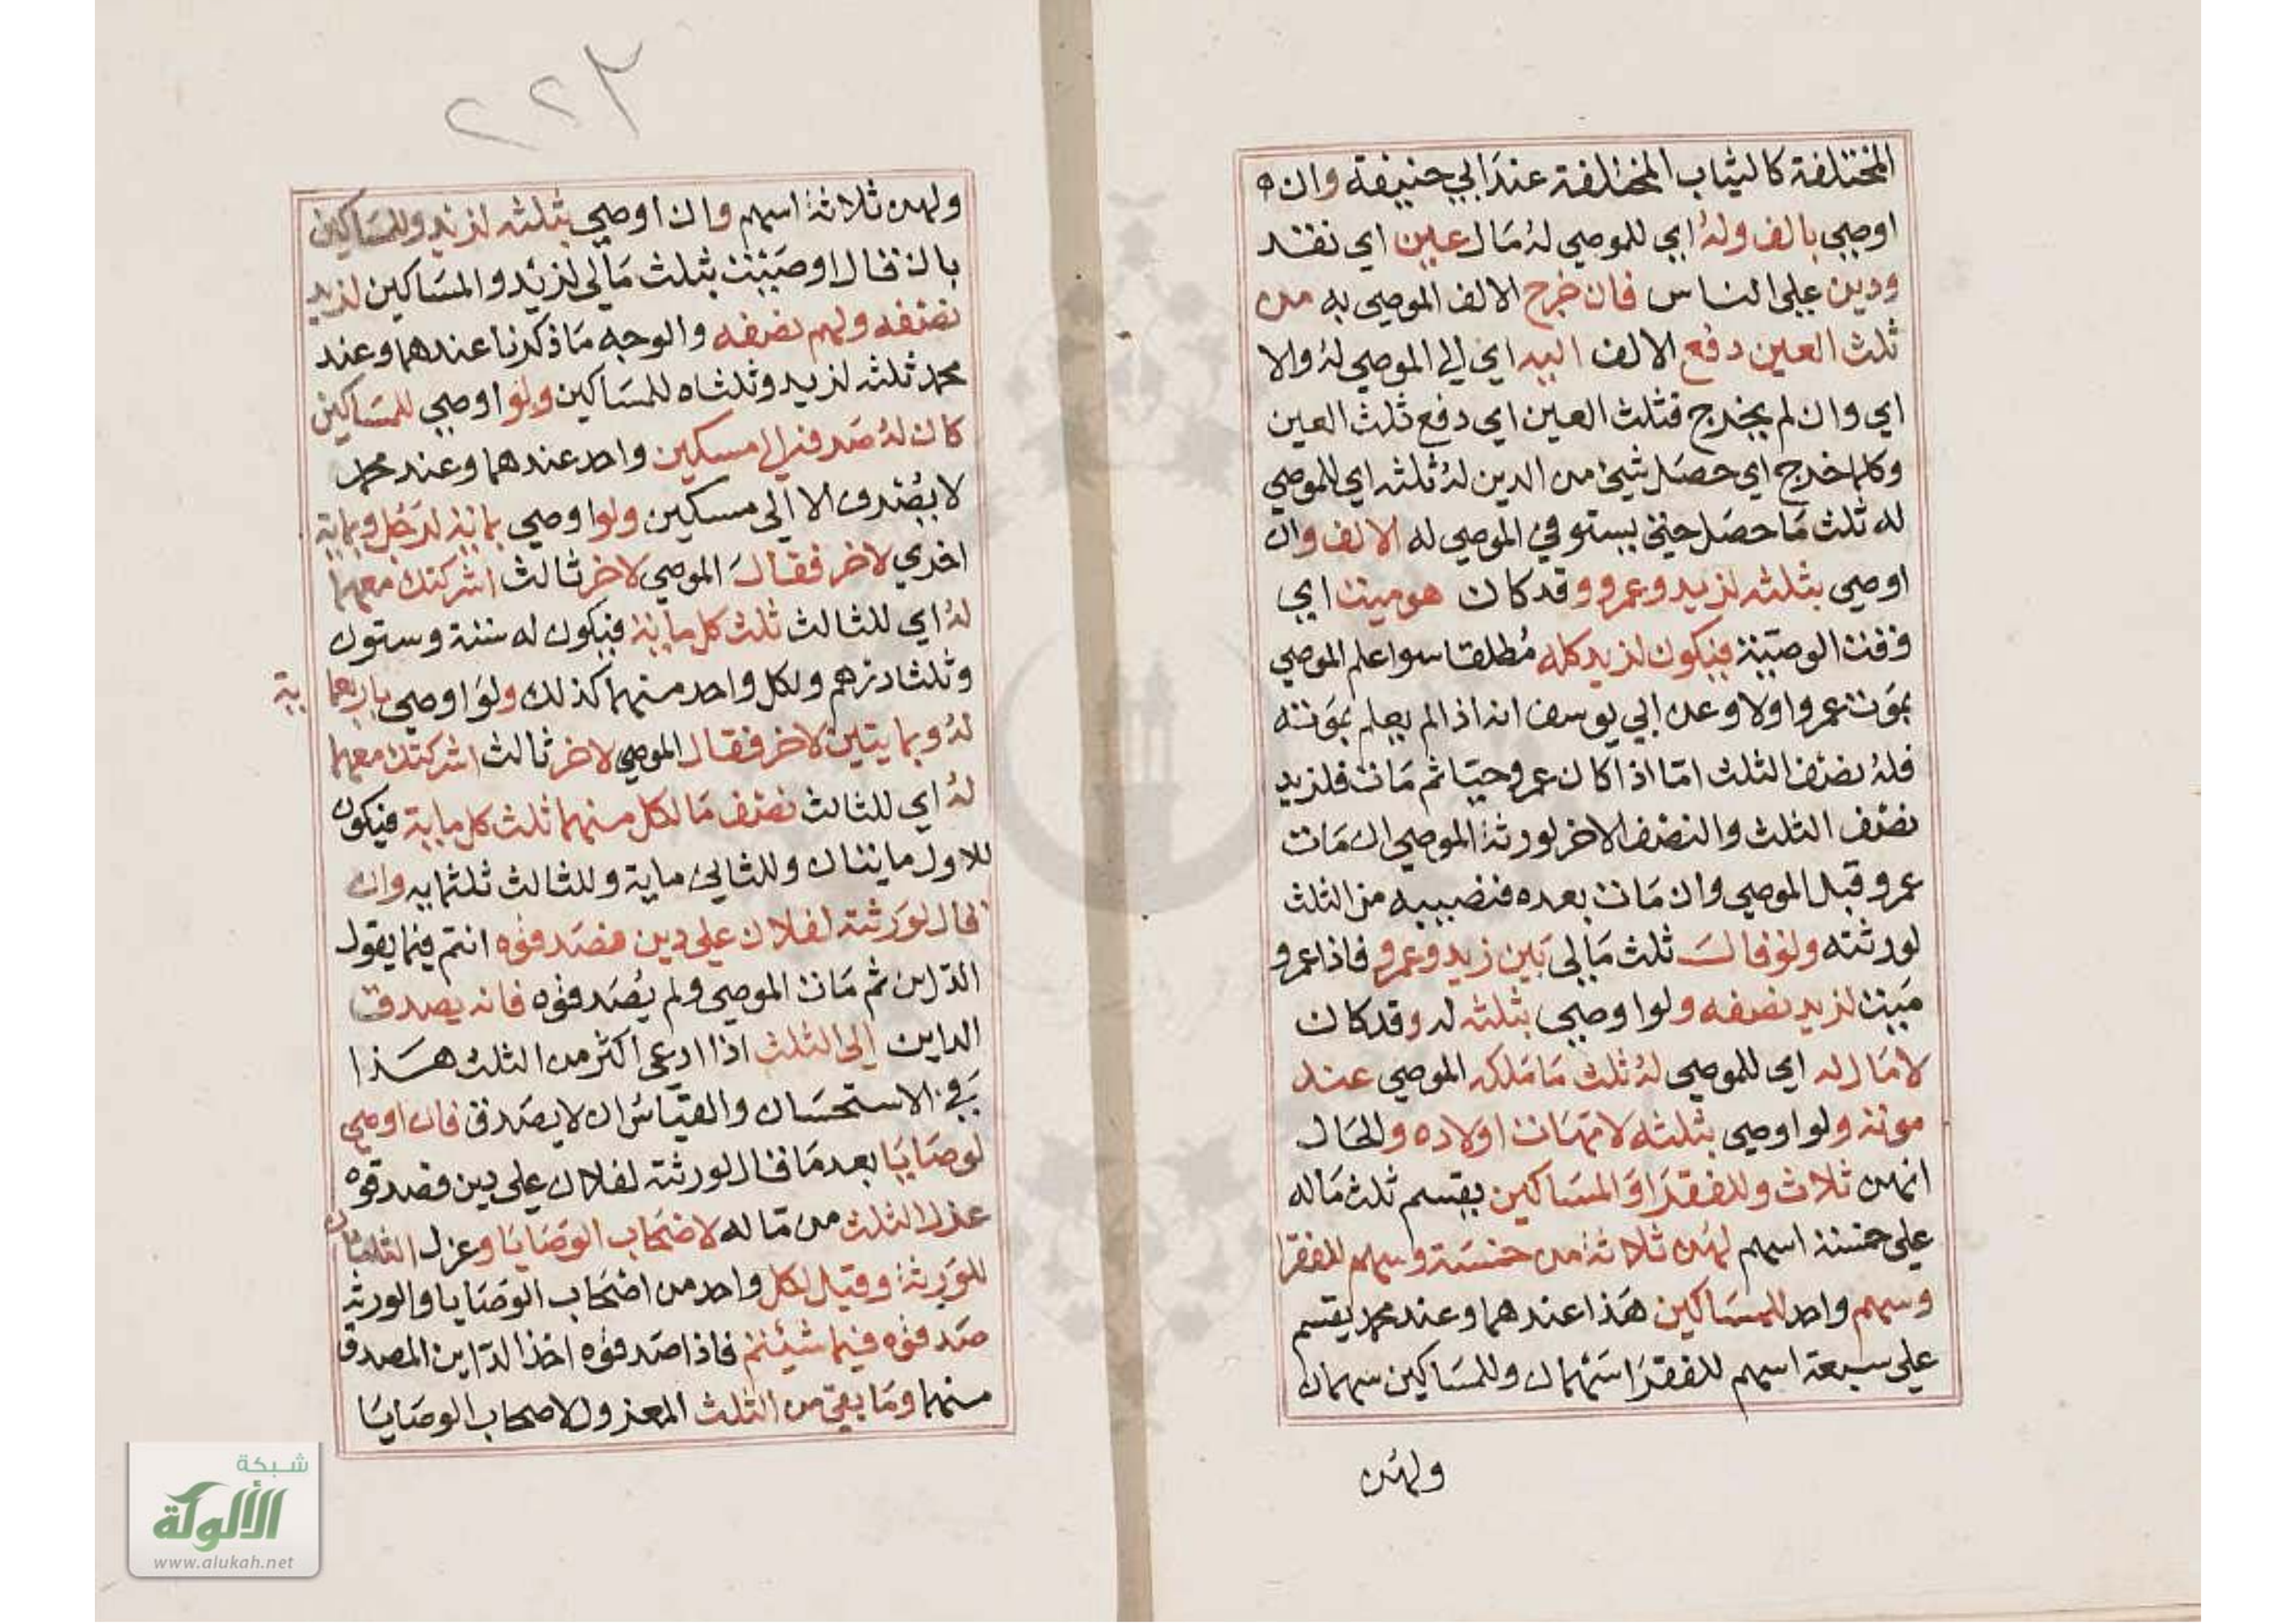 المختلفة كالثياب المختلفة عند ابي حنيفة وان
اوصي بالف وله اي للموصي له مال عين اي نقد
ودين علي الناس فان خرج الالف الموصي به من
ثلث العين دفع الالف اليه اي الي الموصي له والا
اي وان لم يخرج فثلث العين اي دفع ثلث العين
وكلما خرج اي حصل شيئ من الدين له ثلثه اي للموصي
له ثلث ما حصل حتي يستوفي الموصي له الالف وان
اوصي بثلثه لزيد وعمرو وقد كان هو ميت اي
وقت الوصية فيكون لزيد كله مطلقا سوا علم الموصي
بموت عمرو اولا وعن ابي يوسف انه اذا لم يعلم بموته
فله نصف الثلث اما اذا كان عمرو حيا ثم مات فلزيد
نصف الثلث والنصف الاخر لورثة الموصي ان مات
عمرو قبل الموصي وان مات بعده فنصيبه من الثلث
لورثته ولو قال ثلث مالي بين زيد وعمرو فاذا عمرو
ميت لزيد نصفه ولو اوصي بثلثه له وقد كان
لا مال له اي للموصي له ثلث ما ملكه الموصي عند
موته ولو اوصي بثلثه لامهات اولاده والحال
انهن ثلاث وللفقرا والمساكين يقسم ثلث ماله
علي خمسة اسهم لهن ثلاثة من خمسة وسهم للفقرا
وسهم واحد للمساكين هذا عندهما وعند محمد يقسم
علي سبعة اسهم للفقرا سهمان وللمساكين سهمان
ولهن
٢٢٣
ولهن ثلاثة اسهم وان اوصي بثلثه لزيد وللمساكين
بان قال اوصيت بثلث مالي لزيد والمساكين لزيد
نصفه ولهم نصفه والوجه ما ذكرنا عندهما وعند
محمد ثلثه لزيد وثلثاه للمساكين ولو اوصي للمساكين
كان له صرفه الي مسكين واحد عندهما وعند محمد
لا يصرف الا الي مسكين ولو اوصي بماية لرجل وبماية
اخري لاخر فقال الموصي لاخر ثالث اشركتك معهما
له اي للثالث ثلث كل ماية فيكون له ستة وستون
وثلثا درهم ولكل واحد منهما كذلك ولو اوصي باربعما ية
له وبمايتين لاخر فقال الموصي لاخر ثالث اشركتك معهما
له اي للثالث نصف ما لكل منهما ثلث كل ماية فيكون
للاول مايتان وللثاني ماية وللثالث ثلثمايه وان
قال لورثته لفلان علي دين فصدقوه انتم فيما يقول
الداين ثم مات الموصي ولم يصدقوه فانه يصدق
الداين الي الثلث اذا ادعي اكثر من الثلث هذا
في الاستحسان والقياس ان لا يصدق فان اوصي
لوصايا بعد ما قال لورثته لفلان علي دين فصدقوه
عزل الثلث من ماله لاصحاب الوصايا وعزل الثلثان
للورثة وقيل لكل واحد من اصحاب الوصايا والورثه
صدقوه فيما شيئتم فاذا صدقوه اخذ الداين المصدق
منهما وما بقي من الثلث المعزول لاصحاب الوصايا
شبكة
الألوكة
www.alukah.net